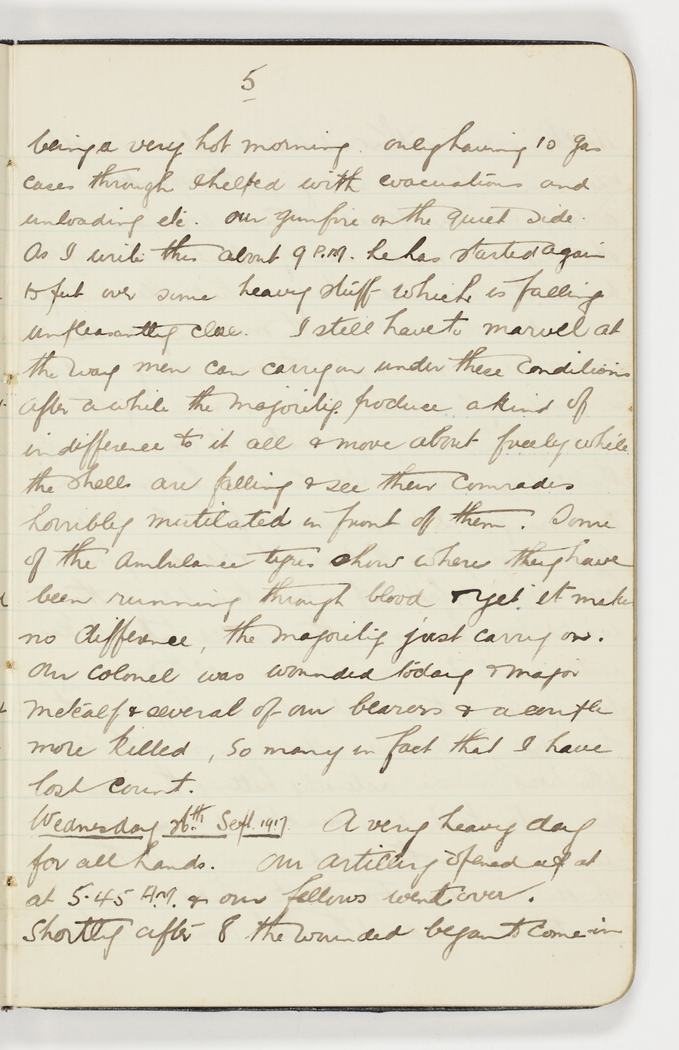 5
being a very hot morning. only having 10 gas
cases through I helped with evacuations and
unloading etc. our gunfire on the quiet side.
As I write this about 9 P.M. he has started again
to put over some heavy stuff which is falling
unpleasantly close. I still have to marvel at
the way men can carry on under these conditions
after a while the majority produce a kind of
indifference to it all & move about freely while
the shells are falling & see their comrades
horribly mutilated in front of them. Some
of the Ambulance tyres show where they have
been running through blood & yet it makes
no difference, the majority just carry on.
Our Colonel was wounded today & Major
Metcalf & several of our bearers & a couple
more killed, so many in fact that I have
lost count.
Wednesday 26th Sept. 1917. A very heavy day
for all hands. Our artillery opened up at
at 5.45 A.M. & our fellows went over.
Shortly after 8 the wounded began to come in